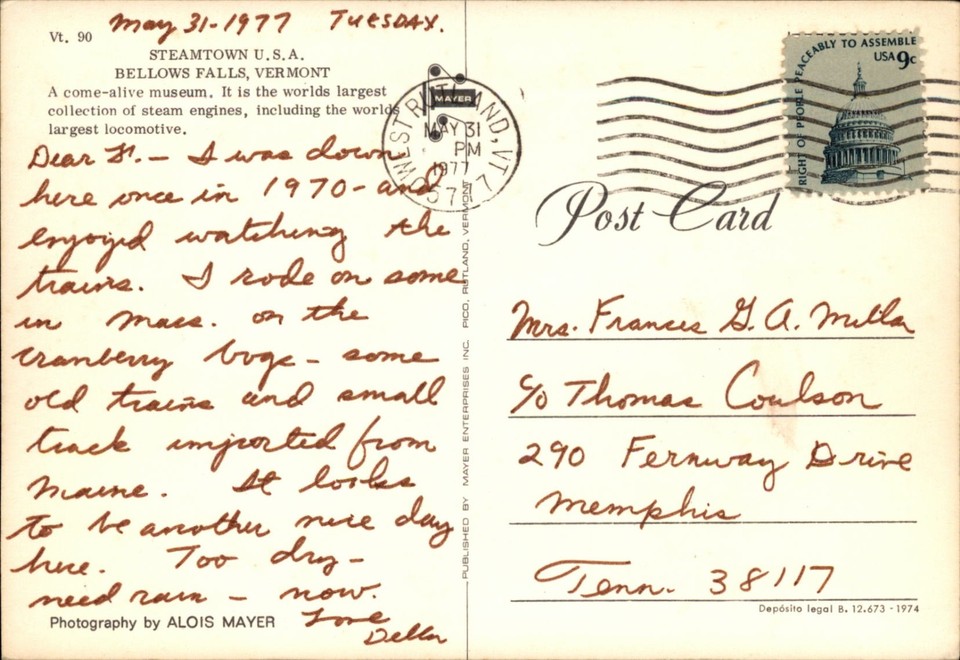 May 31-1977 TUESDAY.
Vt. 90
STEAMTOWN U.S.A.
BELLOWS FALLS, VERMONT
A come-alive museum. It is the worlds largest
collection of steam engines, including the worlds
largest locomotive.
Dear Fr. - I was down
here once in 1970 - and
enjoyed watching the
trains. I rode on some
in Mass. on the
cranberry bogs - some
old trains and small
track imported from
Maine. It looks
to be another nice day
here. Too dry -
need rain - now.
Love
Della
Photography by ALOIS MAYER
PUBLISHED BY MAYER ENTERPRISES INC. PICO, RUTLAND, VERMONT
MAYER
WEST RUTLAND, VT.
MAY 31
PM
1977
RIGHT OF PEOPLE PEACEABLY TO ASSEMBLE
USA 9c
Post Card
Mrs. Frances G. A. Miller
c/o Thomas Coulson
290 Fernway Drive
Memphis
Tenn. 38117
Depósito legal B. 12.673 - 1974